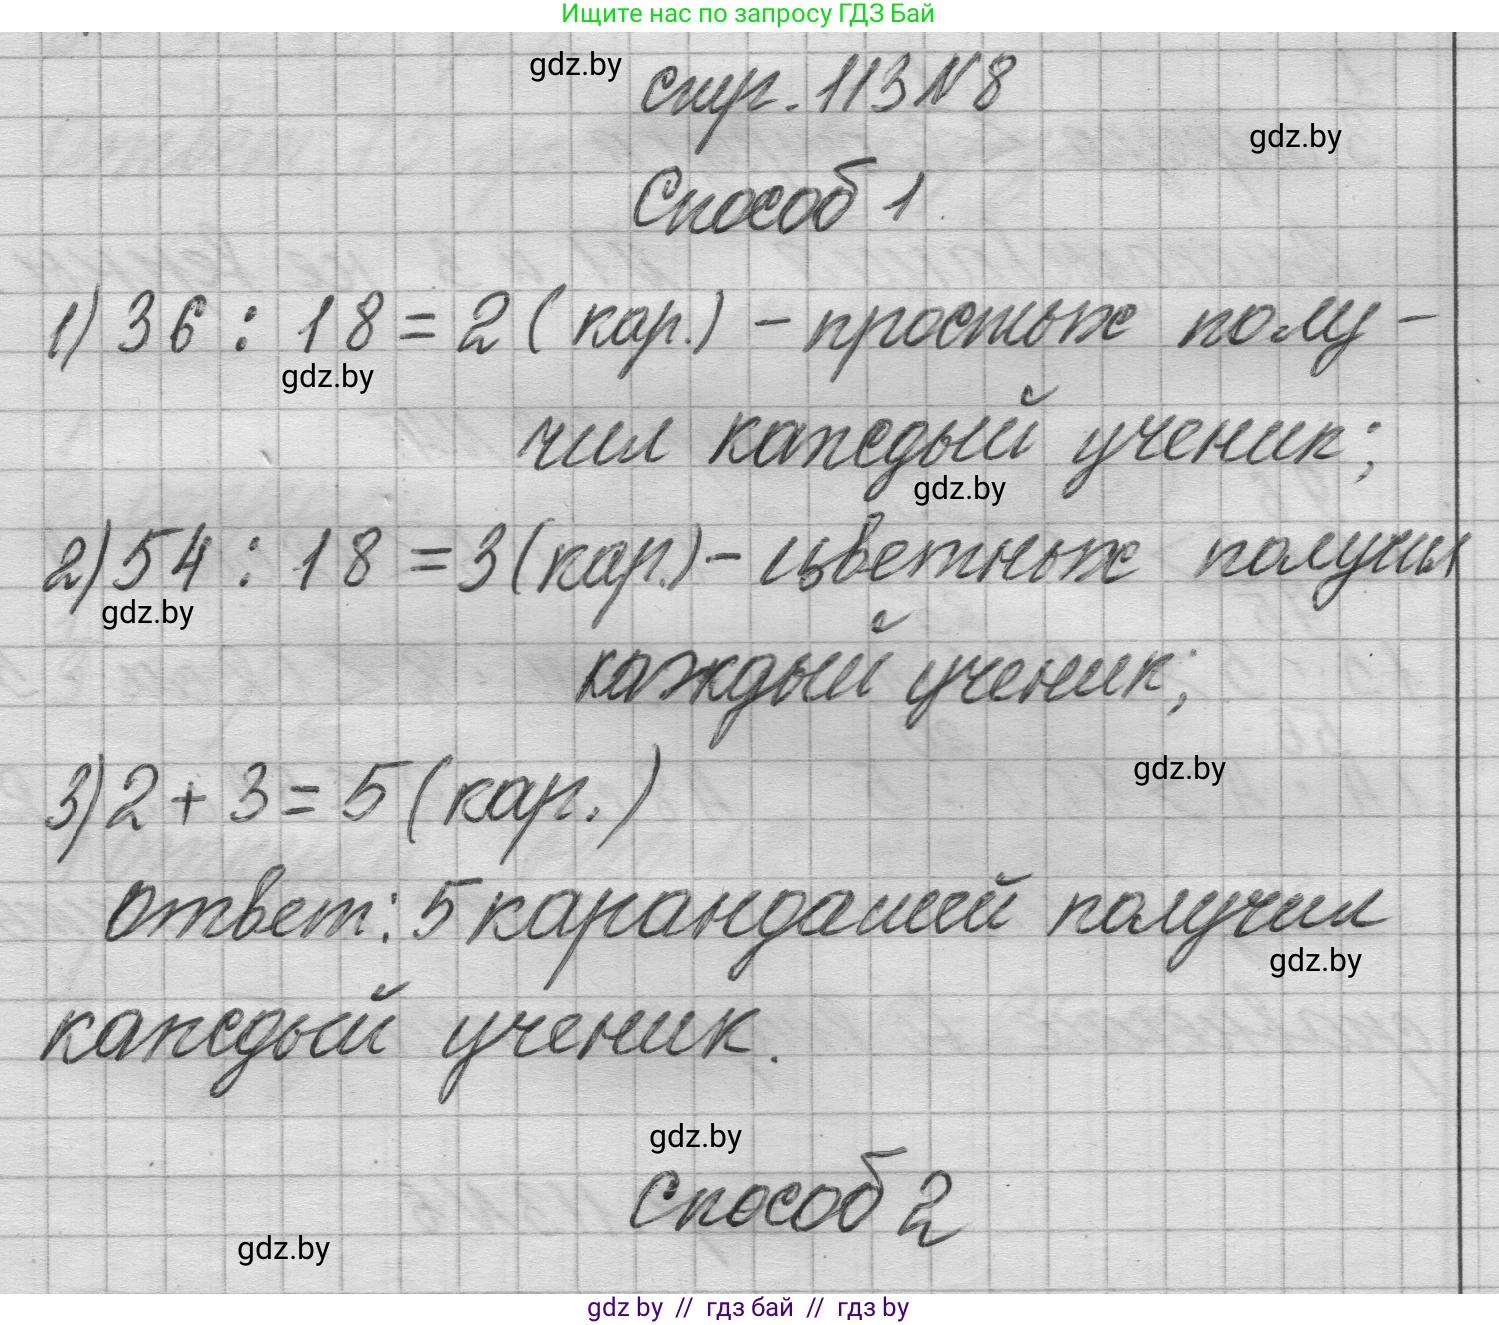 Ищите нас по запросу ГДЗ Бай
gdz.by
стр. 113 №8
gdz.by
Способ 1
1) 36 : 18 = 2 (кар.) - простых полу-
gdz.by
чил каждый ученик;
gdz.by
2) 54 : 18 = 3 (кар.) - цветных получил
gdz.by
каждый ученик;
gdz.by
3) 2 + 3 = 5 (кар.)
Ответ: 5 карандашей получил
gdz.by
каждый ученик.
gdz.by
Способ 2
gdz.by
gdz by // гдз бай // гдз by